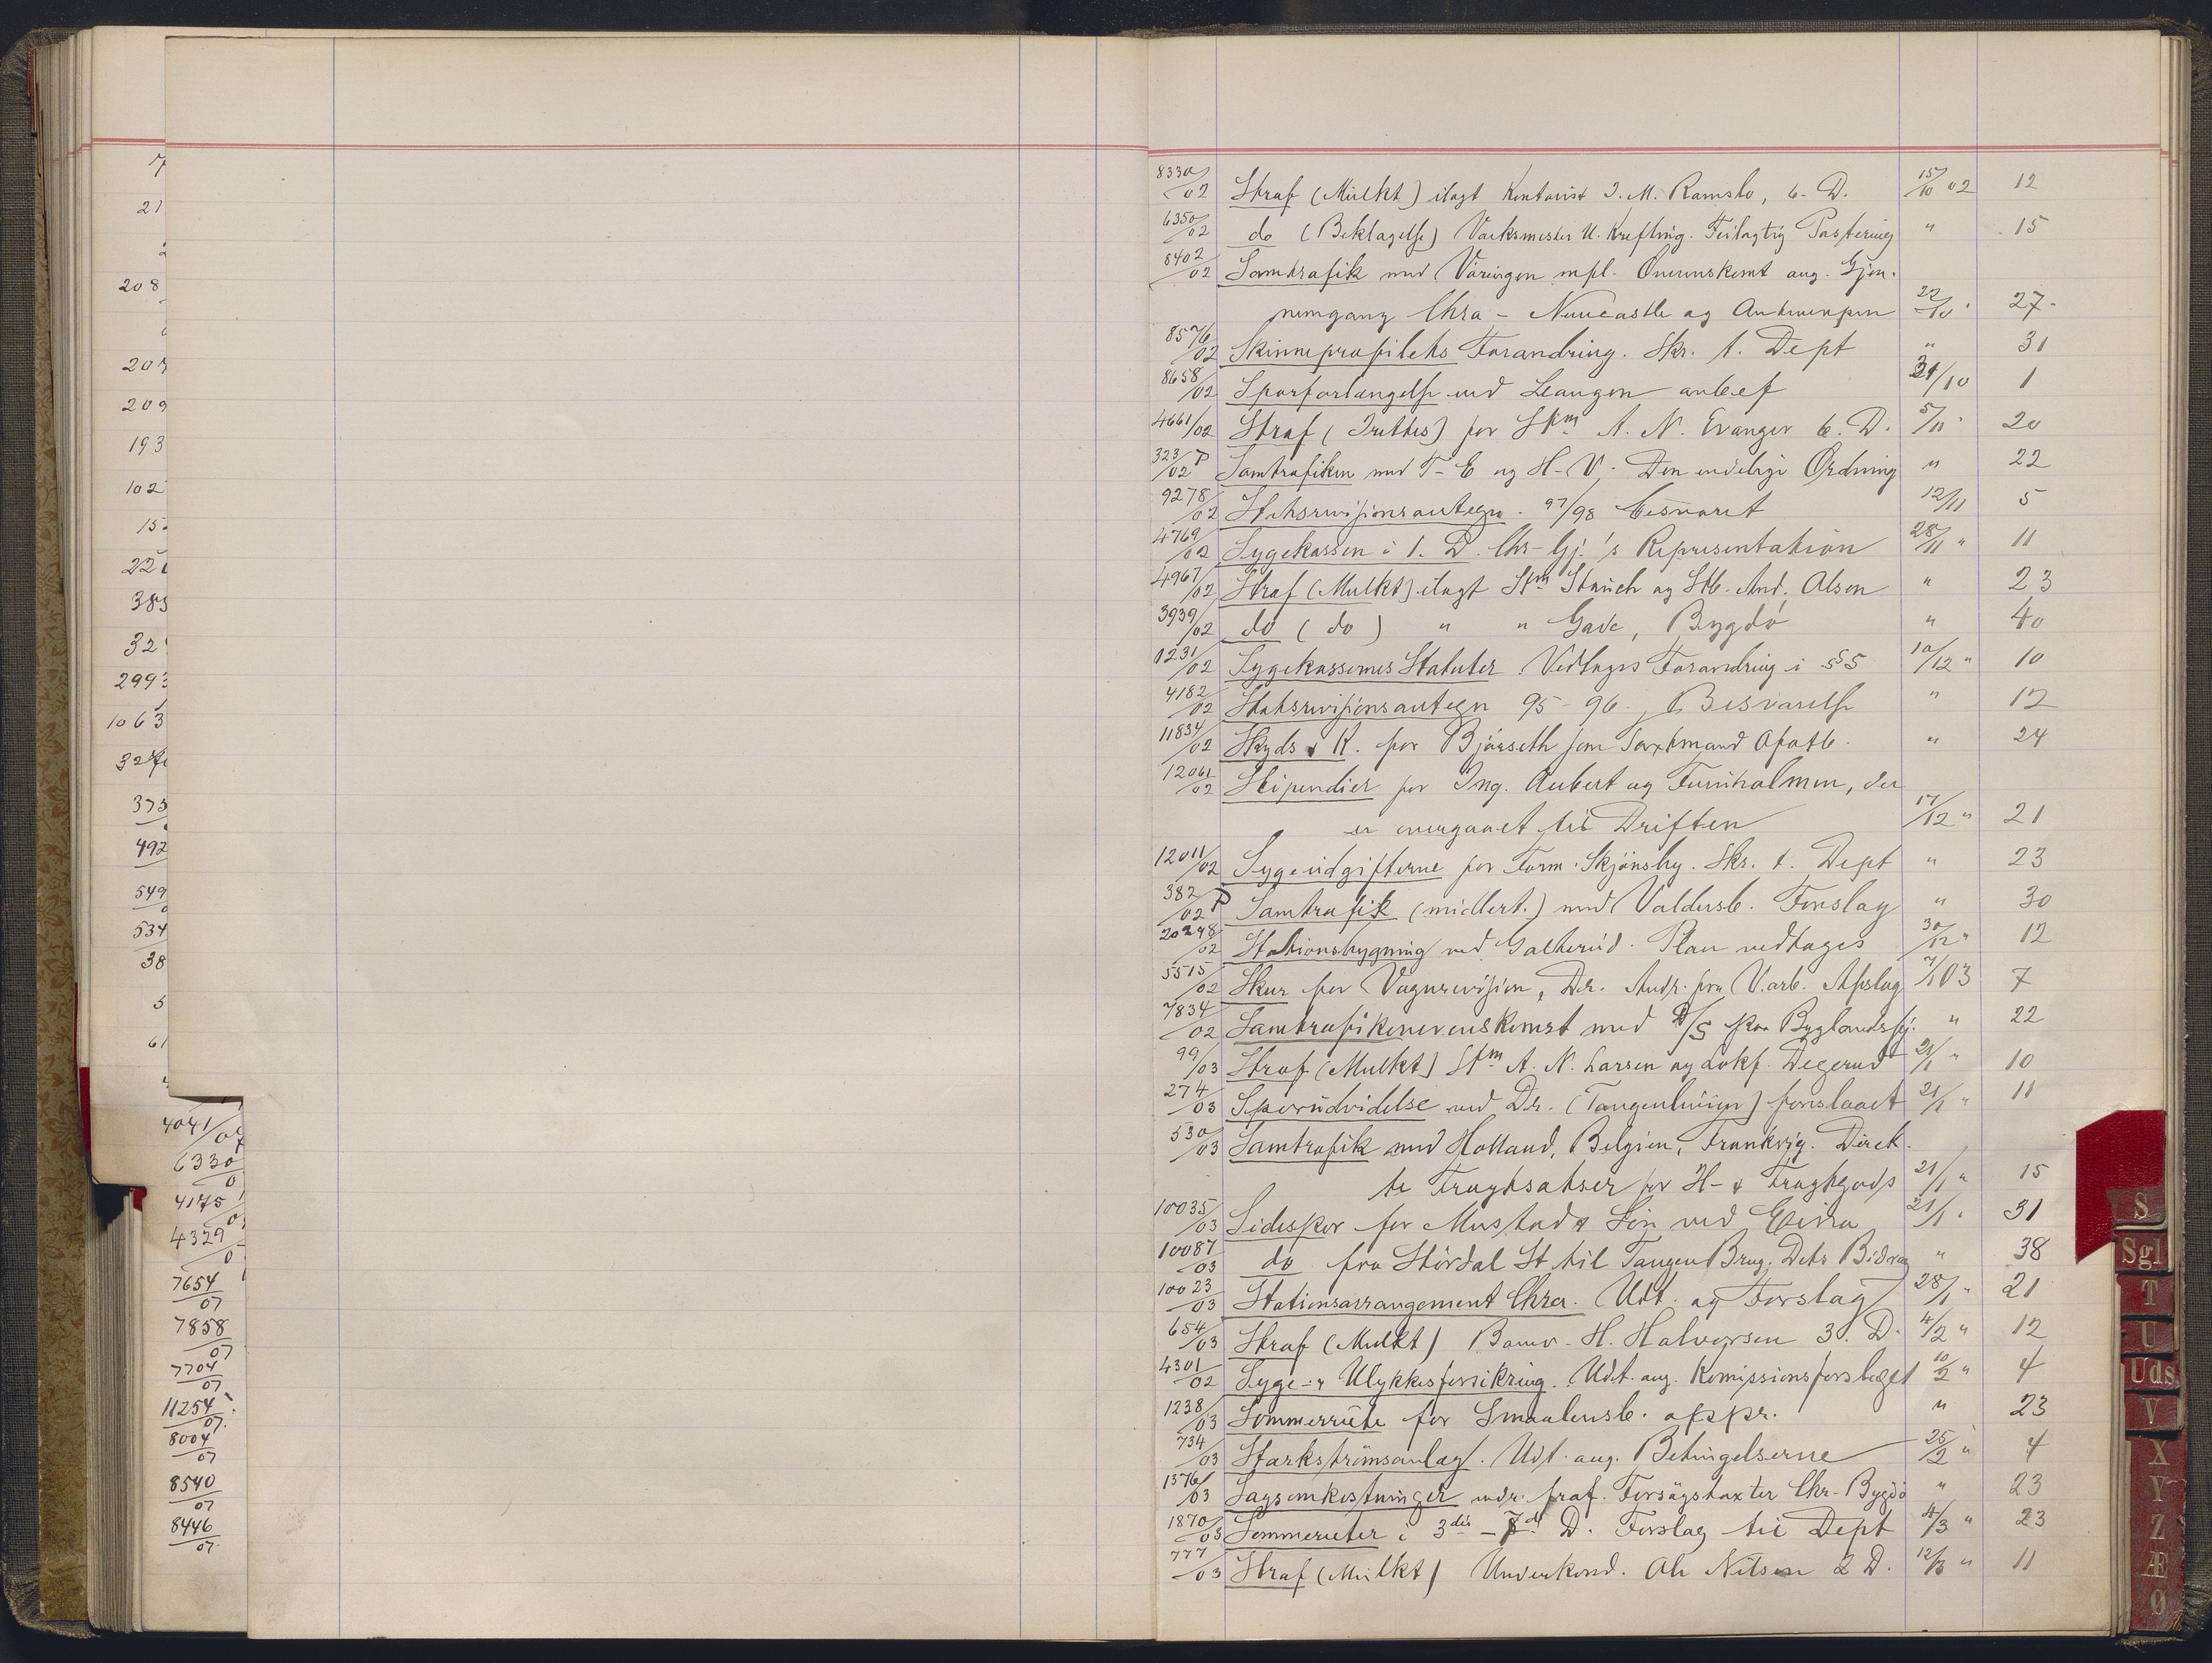 7
21
2
208
207
209
193
102
15
22
385
32
2993
1063
327
373
492
549
534
38
5
61
4041/07
6330/0
4175/0
4329/0
7654/07
7858/07
7704/07
11254/07
8004/07
8540/07
8446/07
8330/02 Straf (Mulkt) ilagt Kontorist J. M. Ramslo, 6. D. 15/10 02 12
6350/02 do (Beklagelse) Værksmester U. Krefting. Feilagtig Postering " 15
8402/02 Samtrafik med Væringen mfl. Overenskomt ang. Gjen-
nemgang Chra - Newcastle og Antwerpen 22/10 " 27
8576/02 Skinneprofilets Forandring. Skr. t. Dept " 31
8658/02 Sporforlængelse ved Leangen anbef 31/10 1
4661/02 Straf (Irettes) for Stm A. N. Evanger 6. D. 5/11 " 20
323/02 P Samtrafiken med T-E og H-V. Den endelige Ordning " 22
9278/02 Statsrevisionsantegn. 97/98 besvaret 12/11 5
4769/02 Sygekassen i 1. D. Chr-Gj.'s Representation 28/11 " 11
4967/02 Straf (Mulkt) ilagt Stm Stauch og Stb. And. Olsen " 23
3939/02 do (do) " " Gade, Bygdö " 40
1231/02 Sygekassernes Statuter. Vedtages Forandring i §5 10/12 " 10
4182/02 Statsrevisionsantegn 95-96. Besvarelse " 12
11834/02 Skyds & K. for Bjørseth som Taxtmand Ofotb. " 24
12061/02 Stipendier for Ing. Aubert og Furuholmen, der
er overgaaet til Driften 17/12 " 21
12011/02 Sygeudgifterne for Form. Skjönsby. Skr. t. Dept " 23
382/02 P Samtrafik (midlert.) med Valdersb. Forslag " 30
20248/02 Stationsbygning ved Galterud. Plan vedtages 30/12 " 12
5515/02 Skur for Vognrevision, Dr. Andr. fra V.arb. Afslag 7/1 03 7
7834/02 Samtrafikoverenskomst med D/S paa Byglandsfj. " 22
99/03 Straf (Mulkt) Stm A. N. Larsen og Lokf. Degerud 21/1 " 10
274/03 Sporudvidelse ved Dr. (Tangenlinjen) foreslaaet 21/1 " 11
530/03 Samtrafik med Holland, Belgien, Frankrig. Direk-
te Fragtsatser for H- & Fragtgods 21/1 " 15
10035/03 Sidespor for Mustad & Søn ved Eina 21/1 " 31
10087/03 do fra Stördal St til Tangen Brug. Dets Bidrag " 38
10023/03 Stationsarrangement Chra. Udt. og Forslag 28/1 " 21
654/03 Straf (Mulkt) Banv. H. Halvorsen 3. D. 4/2 " 12
4301/02 Syge- & Ulykkesforsikring. Udt. ang. Komissionsforslaget 10/2 " 4
1238/03 Sommerrute for Smaalensb. appr. " 23
734/03 Stærkstrømsanlæg. Udt. ang. Betingelserne 25/2 " 4
1376/03 Sagsomkostninger vedr. Forsøgstaxter Chr-Bygdö " 23
1870/03 Sommerruter i 3die - 7de D. Forslag til Dept 4/3 " 23
777/03 Straf (Mulkt) Underkond. Ole Nilsen 2 D. 12/3 " 11
S
Sgl
T
U
Uds
V
X
Y
Z
Æ
Ø